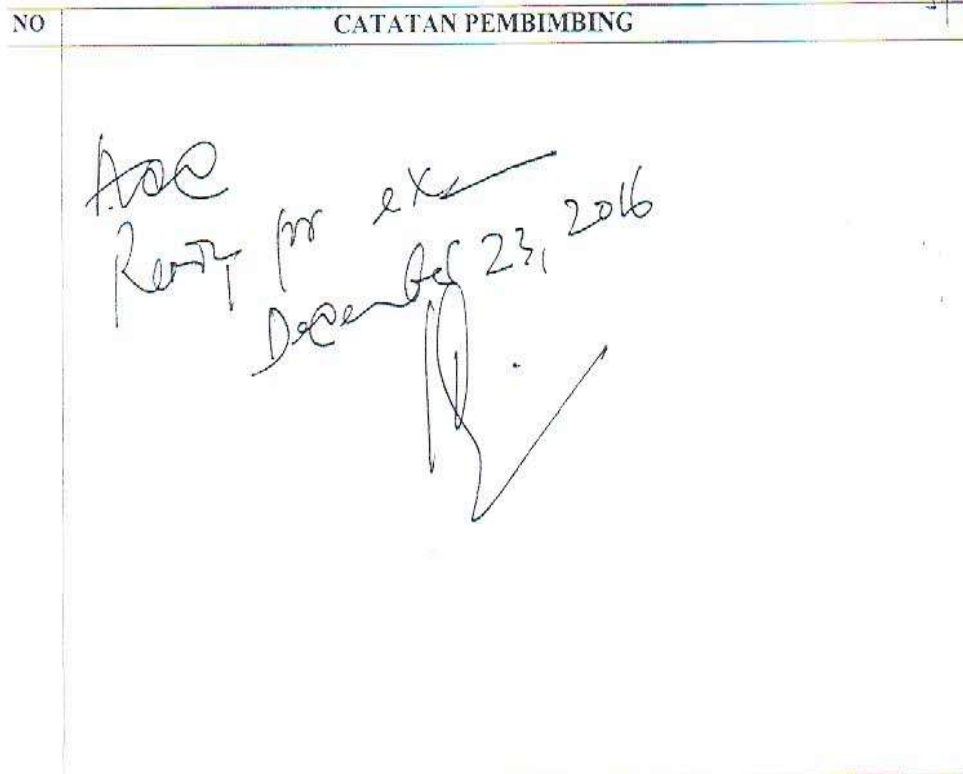 NO CATATAN PEMBIMBING
Acc
Ready for ex
December 23, 2016